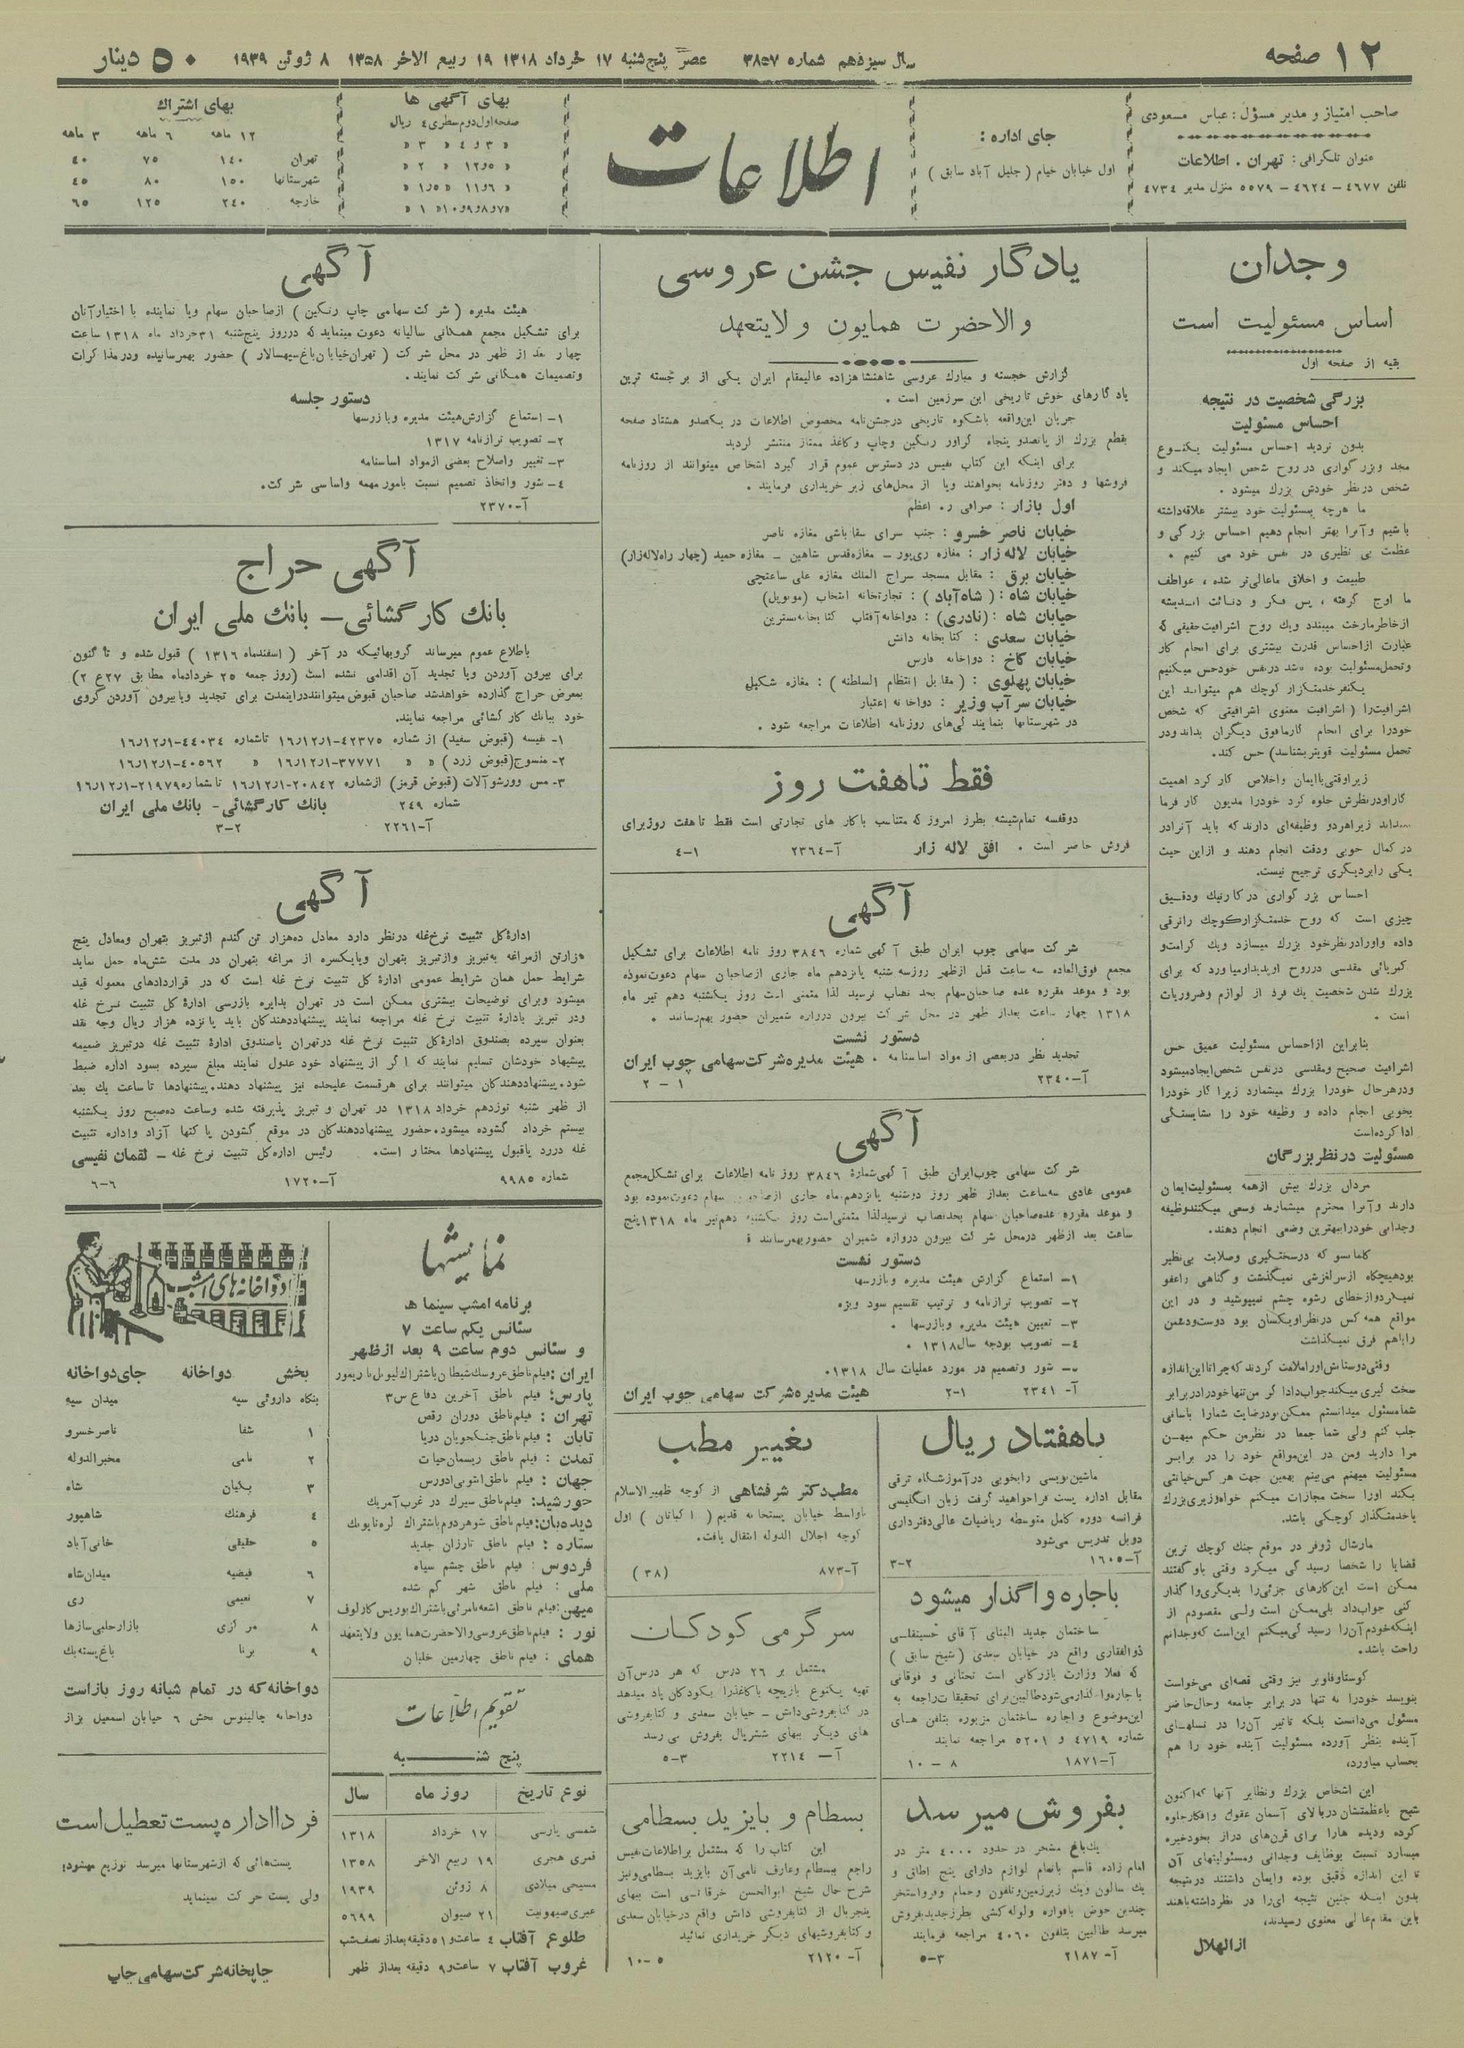 ۱۲ صفحه
سال سیزدهم شماره ۳۸۵۷ عصر پنج‌شنبه ۱۷ خرداد ۱۳۱۸ ۱۹ ربیع الاخر ۱۳۵۸ ۸ ژوئن ۱۹۳۹
۵۰ دینار
صاحب امتیاز و مدیر مسؤل : عباس مسعودی
عنوان تلگرافی : تهران . اطلاعات
تلفن ۴۶۷۷ – ۴۶۲۴ – ۵۵۷۹ منزل مدیر ۴۷۳۴
جای اداره :
اول خیابان خیام ( جلیل آباد سابق )
اطلاعات
بهای آگهی ها
صفحه اول دوم سطری ۴ ریال
» ۳ و ۴ » ۳ »
بهای اشتراك
۱۲ ماهه ۶ ماهه ۳ ماهه
تهران ۱۴۰ ۷۵ ۴۰
شهرستانها ۱۵۰ ۸۰ ۴۵
خارجه ۲۴۰ ۱۲۵ ۶۵
وجدان
اساس مسئولیت است
بقیه از صفحه اول
بزرگی شخصیت در نتیجه
احساس مسئولیت
بدون تردید احساس مسئولیت یکنوع
مجد و بزرگواری در روح شخص ایجاد میکند و
شخص در نظر خودش بزرك میشود .
ما هر چه بمسئولیت خود بیشتر علاقه داشته
باشیم و آنرا بهتر انجام دهیم احساس بزرگی و
عظمت بی نظیری در نفس خود می کنیم .
طبیعت و اخلاق ما عالی تر شده ، عواطف
ما اوج گرفته ، پس فکر و دنائت اندیشه
از خاطر ما رخت میبندد و یك روح اشرافیت حقیقی که
عبارت از احساس قدرت بیشتری برای انجام کار
و تحمل مسئولیت بوده باشد در نفس خود حس میکنیم
یکنفر خدمتگزار کوچك هم میتواند این
اشرافیت را ( اشرافیت معنوی اشرافیتی که شخص
خود را برای انجام کار مافوق دیگران بداند و در
تحمل مسئولیت قویتر بشناسد) حس کند.
زیرا وقتی با ایمان و اخلاص کار کرد اهمیت
کار او در نظرش جلوه کرد خود را مدیون کار فرما
زیرا هر دو وظیفه‌ای دارند که باید آنرا در
در کمال خوبی و دقت انجام دهند و از این حیث
یکی را بر دیگری ترجیح نیست.
احساس بزرگواری در کار نیك و دقیق
چیزی است که روح خدمتگزار کوچك را ترقی
داده و او را در نظر خود بزرك میسازد و یك کرامت و
کبریائی مقدسی در روح او پدید میاورد که برای
بزرك شدن شخصیت یك فرد از لوازم و ضروریات
است .
بنابر این از احساس مسئولیت عمیق حس
اشرافیت صحیح و مقدسی در نفس شخص ایجاد میشود
و در هر حال خود را بزرك میشمارد زیرا کار خود را
بخوبی انجام داده و وظیفه خود را بشایستگی
ادا کرده است
مسئولیت در نظر بزرگان
مردان بزرك بیش از همه بمسئولیت ایمان
دارند و آنرا محترم میشمارند و سعی میکنند وظیفه
وجدانی خود را بهترین وضعی انجام دهند.
کلمانسو که در سختگیری و صلابت بی نظیر
بود هیچگاه از سر لغزشی نمیگذشت و گناهی را عفو
نمیکرد و از خطای رشوه چشم نمیپوشید و در این
مواقع همه کس در نظر او یکسان بود دوست و دشمن
را با هم فرق نمیگذاشت
وقتی دوستانش او را ملامت کردند که چرا تا این اندازه
سخت گیری میکند جواب داد اگر من تنها خود را در برابر
شما مسئول میدانستم ممکن بود رضایت شما را بآسانی
جلب کنم ولی شما جمعا در نظر من حکم میهن
مرا دارید و من در این مواقع خود را در برابر
مسئولیت میهنم می بینم بهمین جهت هر کس خیانتی
بکند او را سخت مجازات میکنم خواه وزیری بزرك
یا خدمتگذار کوچکی باشد.
مارشال ژوفر در موقع جنك کوچك ترین
قضایا را شخصا رسیدگی میکرد وقتی باو گفتند
ممکن است این کارهای جزئی را بدیگری واگذار
کنی جواب داد بلی ممکن است ولی مقصودم از
اینکه خودم آن را رسیدگی میکنم این است که وجدانم
راحت باشد.
گوستاو فلوبر نیز وقتی قصه‌ای می‌خواست
بنویسد خود را نه تنها در برابر جامعه و حال حاضر
مسئول می‌دانست بلکه تاثیر آن را در نسلهای
آینده بنظر آورده مسئولیت آینده خود را هم
بحساب میاورد.
این اشخاص بزرك و نظایر آنها که اکنون
شبح با عظمتشان در بالای آسمان عقول و افکار جلوه
کرده و دیده ها را برای قرن‌های دراز بخود خیره
میسازد نسبت بوظایف وجدانی و مسئولیتهای آن
تا این اندازه دقیق بوده و ایمان داشتند در نتیجه
بدون اینکه چنین نتیجه ای را در نظر داشته باشند
باین مقام عالی معنوی رسیدند.
از الهلال
یادگار نفیس جشن عروسی
والاحضرت همایون ولایتعهد
گزارش خجسته و مبارك عروسی شاهنشاهزاده عالیمقام ایران یکی از برجسته ترین
یادگارهای خوش تاریخی این سرزمین است .
جریان این واقعه باشکوه تاریخی در جشن نامه مخصوص اطلاعات در یکصد و هشتاد صفحه
بقطع بزرك از پانصد و پنجاه گراور رنگین و چاپ و کاغذ ممتاز منتشر گردید
برای اینکه این کتاب نفیس در دسترس عموم قرار گیرد اشخاص میتوانند از روزنامه
فروشها و دفتر روزنامه بخواهند و یا از محل‌های زیر خریداری فرمایند .
اول بازار : صرافی ر. اعظم
خیابان ناصر خسرو : جنب سرای سقاباشی مغازه ناصر
خیابان لاله زار : مغازه ری‌پور – مغازه قدس شاهین – مغازه حمید (چهار راه لاله‌زار)
خیابان برق : مقابل مسجد سراج الملك مغازه علی ساعتچی
خیابان شاه : (شاه‌آباد) : تجارتخانه انتخاب (موبویل)
خیابان شاه : (نادری) : دواخانه آفتاب کتابخانه بسترین
خیابان سعدی : کتابخانه دانش
خیابان کاخ : دواخانه فارس
خیابان پهلوی : (مقابل انتظام السلطنه) : مغازه شکیل
خیابان سر آب وزیر : دواخانه اعتبار
در شهرستانها بنمایندگی‌های روزنامه اطلاعات مراجعه شود .
فقط تا هفت روز
دو قفسه تمام شیشه بطرز امروز که متناسب با کار های تجارتی است فقط تا هفت روز برای
فروش حاضر است . افق لاله زار آ–۲۳۶۴ ۱–۴
آگهی
شرکت سهامی چوب ایران طبق آگهی شماره ۳۸۴۶ روزنامه اطلاعات برای تشکیل
مجمع فوق‌العاده سه ساعت قبل از ظهر روز سه شنبه پانزدهم ماه جاری از صاحبان سهام دعوت نموده
بود و موعد مقرره عده صاحبان سهام بحد نصاب نرسید لذا متمنی است روز یکشنبه دهم تیر ماه
۱۳۱۸ چهار ساعت بعد از ظهر در محل شرکت بیرون دروازه شمیران حضور بهم رسانند .
دستور نشست
تجدید نظر در بعضی از مواد اساسنامه . هیئت مدیره شرکت سهامی چوب ایران
آ–۲۳۴۰ ۱ – ۲
آگهی
شرکت سهامی چوب ایران طبق آگهی شمارهٔ ۳۸۴۶ روزنامه اطلاعات برای تشکیل مجمع
عمومی عادی سه ساعت بعد از ظهر روز دوشنبه پانزدهم ماه جاری از صاحبان سهام دعوت نموده بود
و موعد مقرره عده صاحبان سهام بحد نصاب نرسید لذا متمنی است روز یکشنبه دهم تیر ماه ۱۳۱۸ پنج
ساعت بعد از ظهر در محل شرکت بیرون دروازه شمیران حضور بهمرسانند
دستور نشست
۱– استماع گزارش هیئت مدیره و بازرسها
۲– تصویب ترازنامه و ترتیب تقسیم سود ویژه
۳– تعیین هیئت مدیره و بازرسها .
۴– تصویب بودجه سال ۱۳۱۸ .
شور و تصمیم در مورد عملیات سال ۱۳۱۸.
آ– ۲۳۴۱ ۱–۲ هیئت مدیره شرکت سهامی چوب ایران
با هفتاد ریال
ماشین نویسی را بخوبی در آموزشگاه ترقی
مقابل اداره پست فرا خواهید گرفت زبان انگلیسی
فرانسه دوره کامل متوسطه ریاضیات عالی دفترداری
دوبل تدریس می‌شود
آ–۱۶۰۵ ۲–۳
باجاره واگذار میشود
ساختمان جدید البنای آقای حسینقلی
ذوالفقاری واقع در خیابان سعدی (شیخ سابق)
که فعلا وزارت بازرگانی است تحتانی و فوقانی
باجاره واگذار میشود طالبین برای تحقیقات راجعه به
این موضوع و اجاره ساختمان مزبوره بتلفن های
شماره ۴۷۱۹ و ۵۲۰۱ مراجعه نمایند
آ–۱۸۷۱ ۸ – ۱۰
بفروش میرسد
یك باغ مشجر در حدود ۴۰۰۰ متر در
امام زاده قاسم با تمام لوازم دارای پنج اطاق و
یك سالون و یك زیرزمین و تلفون و حمام
چندین حوض با فواره و لوله کشی بطرز جدید بفروش
میرسد طالبین بتلفون ۴۰۶۰ مراجعه فرمایند
آ– ۲۱۸۷ ۳–۵
تغییر مطب
مطب دکتر شرفشاهی از کوچه ظهیرالاسلام
باواسط خیابان پستخانه قدیم (اکباتان) اول
کوچه اجلال الدوله انتقال یافت.
آ–۸۷۳ (۳۸)
سرگرمی کودکان
مشتمل بر ۲۶ درس که هر درس آن
تهیه یکنوع بازیچه با کاغذ را بکودکان یاد میدهد
در کتابفروشی دانش – خیابان سعدی و کتابفروشی
های دیگر ببهای شش ریال بفروش می رسد
آ– ۲۲۱۴ ۳–۵
بسطام و بایزید بسطامی
این کتاب را که مشتمل بر اطلاعات نفیس
راجع ببسطام و عارف نامی آن بایزید بسطامی و نیز
شرح حال شیخ ابوالحسن خرقانی است ببهای
پنج ریال از کتابفروشی دانش واقع در خیابان سعدی
و کتابفروشیهای دیگر خریداری نمائید
آ– ۲۱۲۰ ۵–۱۰
آگهی
هیئت مدیره ( شرکت سهامی چاپ رنگین ) از صاحبان سهام و یا نماینده با اختیار آنان
برای تشکیل مجمع همگانی سالیانه دعوت مینماید که در روز پنج‌شنبه ۳۱ خرداد ماه ۱۳۱۸ ساعت
چهار بعد از ظهر در محل شرکت ( تهران خیابان باغ سپهسالار ) حضور بهمرسانیده و در مذاکرات
و تصمیمات همگانی شرکت نمایند.
دستور جلسه
۱– استماع گزارش هیئت مدیره و بازرسها
۲– تصویب ترازنامه ۱۳۱۷
۳– تغییر و اصلاح بعضی از مواد اساسنامه
۴– شور و اتخاذ تصمیم نسبت بامور مهمه و اساسی شرکت.
آ–۲۳۷۰
آگهی حراج
بانك کارگشائی – بانك ملی ایران
باطلاع عموم میرساند گروهائیکه در آخر ( اسفندماه ۱۳۱۶ ) قبول شده و تا کنون
برای بیرون آوردن و یا تجدید آن اقدامی نشده است (روز جمعه ۲۵ خردادماه مطابق ۲۷ ع ۲)
بمعرض حراج گذارده خواهد شد صاحبان قبوض میتوانند در اینمدت برای تجدید و یا بیرون آوردن گروی
خود ببانك کارگشائی مراجعه نمایند.
۱– نفیسه (قبوض سفید) از شماره ۴۲۳۷۵–۱۶/۱۲/۱ تا شماره ۴۴۰۳۴–۱۶/۱۲/۱
۲– منسوج (قبوض زرد) » » ۳۷۷۷۱–۱۶/۱۲/۱ » ۴۰۵۶۲–۱۶/۱۲/۱
۳– مس و ورشو آلات (قبوض قرمز) از شماره ۲۰۸۴۲–۱۶/۱۲/۱ تا شماره ۲۱۹۷۹–۱۶/۱۲/۱
شماره ۲۴۹ بانك کارگشائی – بانك ملی ایران
آ–۲۲۶۱ ۲–۳
آگهی
ادارهٔ کل تثبیت نرخ غله در نظر دارد معادل ده هزار تن گندم از تبریز بتهران و معادل پنج
هزار تن از مراغه به تبریز و از تبریز بتهران و یا یکسره از مراغه بتهران در مدت شش ماه حمل نماید
شرایط حمل همان شرایط عمومی ادارهٔ کل تثبیت نرخ غله است که در قراردادهای معموله قید
میشود و برای توضیحات بیشتری ممکن است در تهران بدایره بازرسی ادارهٔ کل تثبیت نرخ غله
و در تبریز بادارهٔ تثبیت نرخ غله مراجعه نمایند پیشنهاد دهندگان باید پانزده هزار ریال وجه نقد
بعنوان سپرده بصندوق ادارهٔ کل تثبیت نرخ غله در تهران یا صندوق ادارهٔ تثبیت غله در تبریز ضمیمه
پیشنهاد خودشان تسلیم نمایند که اگر از پیشنهاد خود عدول نمایند مبلغ سپرده بسود اداره ضبط
شود. پیشنهاد دهندگان میتوانند برای هر قسمت علیحده نیز پیشنهاد دهند. پیشنهادها تا ساعت یك بعد
از ظهر شنبه نوزدهم خرداد ۱۳۱۸ در تهران و تبریز پذیرفته شده و ساعت ده صبح روز یکشنبه
بیستم خرداد گشوده میشود. حضور پیشنهاد دهندگان در موقع گشودن پاکتها آزاد و اداره تثبیت
غله در رد یا قبول پیشنهادها مختار است. رئیس اداره کل تثبیت نرخ غله – لقمان نفیسی
شماره ۹۹۸۵ آ–۱۷۲۰ ۶–۶
نمایشها
برنامه امشب سینماها
سئانس یکم ساعت ۷
و سئانس دوم ساعت ۹ بعد از ظهر
ایران : فیلم ناطق عروسك شیطان باشتراك لیونل باریمور
پارس : فیلم ناطق آخرین دفاع س۳
تهران : فیلم ناطق دوران رقص
تابان : فیلم ناطق جنگجویان دریا
تمدن : فیلم ناطق ریسمان حیات
جهان : فیلم ناطق آنتونی ادورس
خورشید : فیلم ناطق سیرك در غرب آمریك
دیده‌بان : فیلم ناطق شوهر دوم باشتراك لرتا یونك
ستاره : فیلم ناطق تارزان جدید
فردوس : فیلم ناطق چشم سیاه
ملی : فیلم ناطق شهر گم شده
میهن : فیلم ناطق اشعه نامرئی باشتراك بوریس کارلوف
نور : فیلم ناطق عروسی والاحضرت همایون ولایتعهد
همای : فیلم ناطق چهارمین خلبان
تقویم اطلاعات
پنج شنبه
نوع تاریخ روز ماه سال
شمسی پارسی ۱۷ خرداد ۱۳۱۸
قمری هجری ۱۹ ربیع الاخر ۱۳۵۸
مسیحی میلادی ۸ ژوئن ۱۹۳۹
عبری صیهونیت ۲۱ صیوان ۵۶۹۹
طلوع آفتاب ۴ ساعت و ۵۱ دقیقه بعد از نصف شب
غروب آفتاب ۷ ساعت و ۹ دقیقه بعد از ظهر
دواخانه‌های امشب
بخش دواخانه جای دواخانه
بنگاه داروئی سپه میدان سپه
۱ شفا ناصر خسرو
۲ نامی مخبرالدوله
۳ یگیان شاه
۴ فرهنك شاهپور
۵ حقیقی خانی‌آباد
۶ فیضیه میدان شاه
۷ نعیمی ری
۸ مرکزی بازار حلبی سازها
۹ برنا باغ پسته بك
دواخانه که در تمام شبانه روز باز است
دواخانه جالینوس بخش ۶ خیابان اسمعیل بزاز
فردا اداره پست تعطیل است
پست‌هائی که از شهرستانها میرسد توزیع میشود؛
ولی پست حرکت نمینماید
چاپخانه شرکت سهامی چاپ